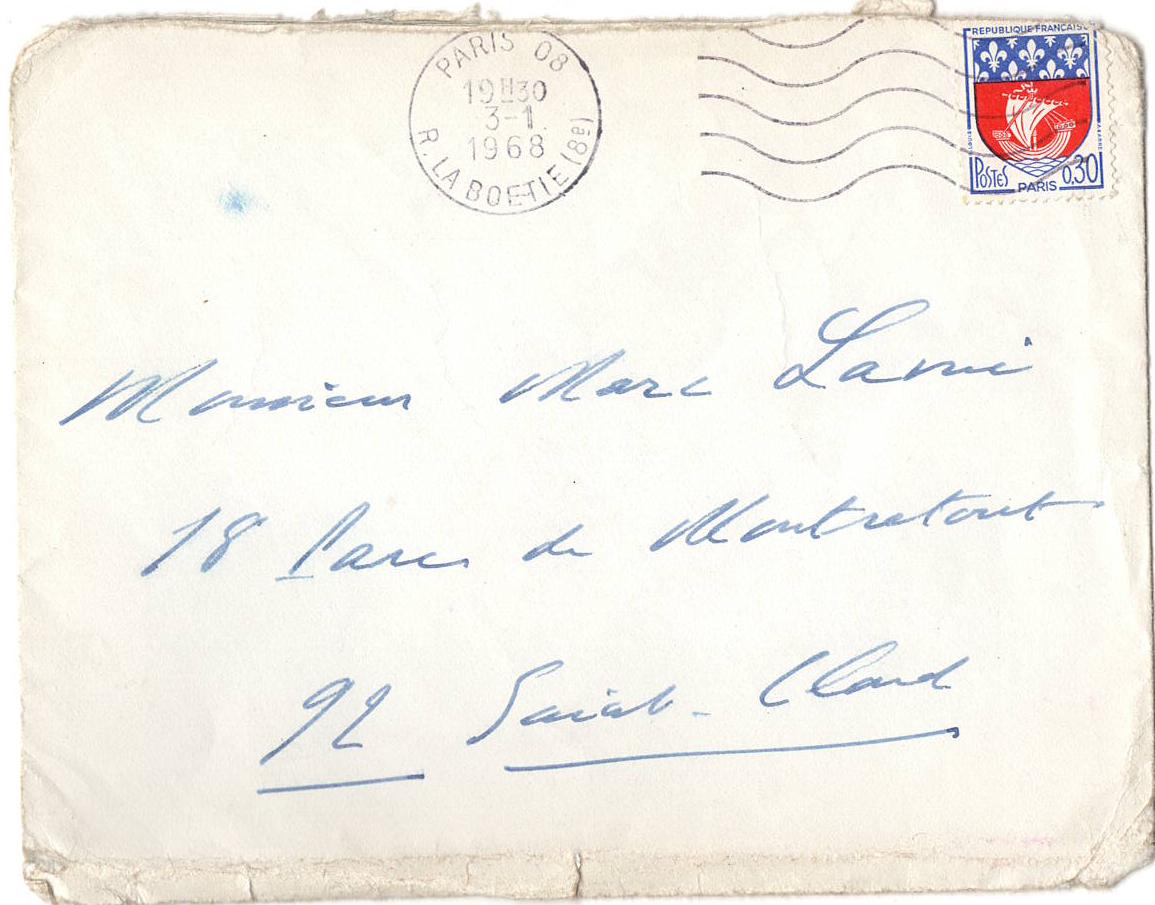 PARIS 08
19H30
3-1
1968
R. LA BOETIE (8e)
REPUBLIQUE FRANCAISE
POSTES
PARIS
0,30
Monsieur Marc Lami
18 Parc de Montretout
92 Saint-Cloud